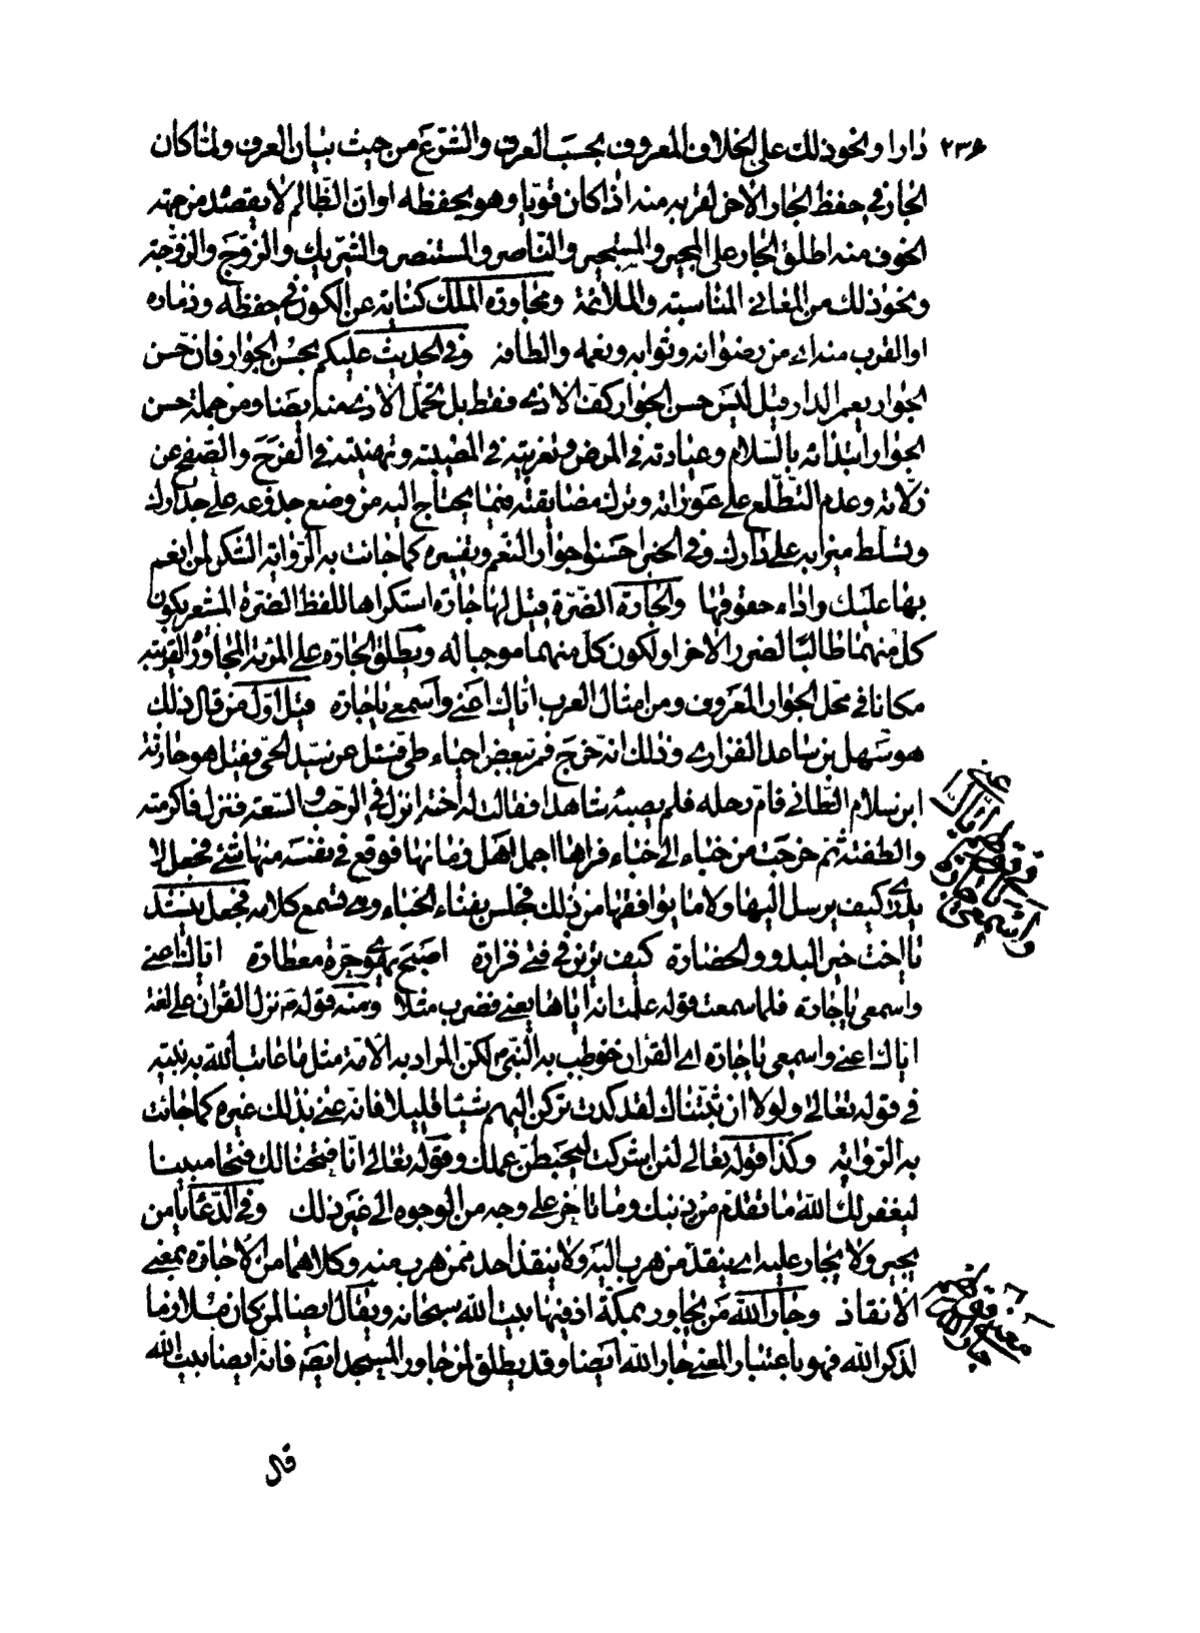 ٢٣٤
دارا ونحو ذلك على الخلاف المعروف بحسب العرف والشرع من حيث بيان العرف ولما كان
الجار في حفظ الجار الاخر لقربه منه اذا كان قويا وهو يحفظه او ان الظالم لا يقصده من جهة
الخوف منه اطلق الجار على المجير والمستجير والناصر والمستنصر والشريك والزوج والزوجة
ونحو ذلك من المعاني المناسبة والملائمة ومجاورة الملك كناية عن الكون في حفظه وذماره
او القرب منه اى من رضوانه وثوابه ونعمه والطافه وفى الحديث عليكم بحسن الجوار فان حسن
الجوار يعمر الدار قيل ليس حسن الجوار كف الاذى فقط بل تحمل الاذى منه ايضا ومن جملة حسن
الجوار ابتدائه بالسلام وعيادته فى المرض وتعزيته فى المصيبة وتهنيته فى الفرح والصفح عن
زلاته وعدم التطلع على عوراته وترك مضايقته فيما يحتاج اليه من وضع جذوعه على جدارك
وتسلط ميزابه على دارك وفى الخبر احسنوا جوار النعم وتفسيره كما جائت به الرواية الشكر لمن انعم
بها عليك واداء حقوقها والجارة الضرة قيل لها جارة استكراها للفظ الضرة المشعر بكون
كل منهما طالبا لضرر الاخر او لكون كل منهما موجبا له ويطلق الجارة على المرية المجاورة القريبة
مكانا فى محل الجوار المعروف ومن امثال العرب اياك اعنى واسمعى يا جارة قيل اول من قال ذلك
هو سهل بن ساعد الفزارى وذلك انه خرج فمر ببعض احياء طى فسئل عن سيد الحى فقيل هو حارثة
ابن سلام الطائى فام رحله فلم يصبه شاهدا فقالت له اخته انزل فى الرحب والسعة فنزل فاكرمته
والطفته ثم خرجت من خباء الى خباء فراها اجمل اهل زمانها فوقع فى نفسه منها شئ فجعل لا
يدرى كيف يرسل اليها ولا ما يوافقها من ذلك فجلس بفناء الخباء وهى تسمع كلامه فجعل ينشد
يا اخت خير البدو والحضارة كيف ترين فى فتى فزارة اصبح يهوى حرة معطارة اياك اعنى
واسمعى يا جارة فلما سمعت قوله علمت انه اياها يعنى فضرب مثلا ومنه قوله م نزل القران على لغة
اياك اعنى واسمعى يا جارة اى القران خوطب به النبى م لكن المراد به الامة مثل ما عاتب الله به نبيه
فى قوله تعالى ولولا ان ثبتناك لقد كدت تركن اليهم شيئا قليلا فانه عنى بذلك غيره كما جائت
به الرواية وكذا قوله تعالى لئن اشركت ليحبطن عملك وقوله تعالى انا فتحنا لك فتحا مبينا
ليغفر لك الله ما تقدم من ذنبك وما تاخر على وجه من الوجوه الى غير ذلك وفى الدعاء يا من
يجير ولا يجار عليه اى ينقذ من هرب اليه ولا ينقذ احد ممن هرب منه وكلاهما من الاجارة بمعنى
الانقاذ وجار الله من يجاور بمكة اذ فيها بيت الله سبحانه ويقال ايضا لمن كان ملازما
لذكر الله فهو باعتبار المعنى جار الله ايضا وقد يطلق لمن جاور المسجد ايضا فانه ايضا بيت الله
قال